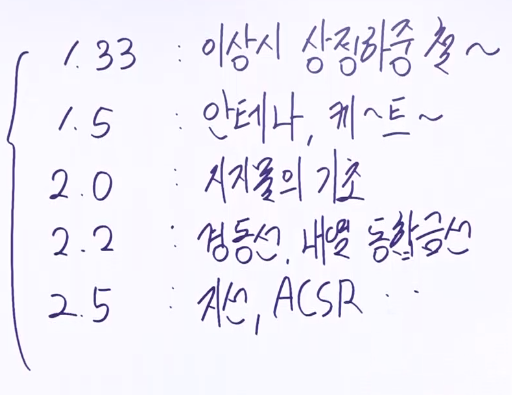 1.33 : 이상시 상정하중 철~
1.5 : 안테나, 케~트~
2.0 : 지지물의 기초
2.2 : 경동선, 내열 동합금선
2.5 : 지선, ACSR ...